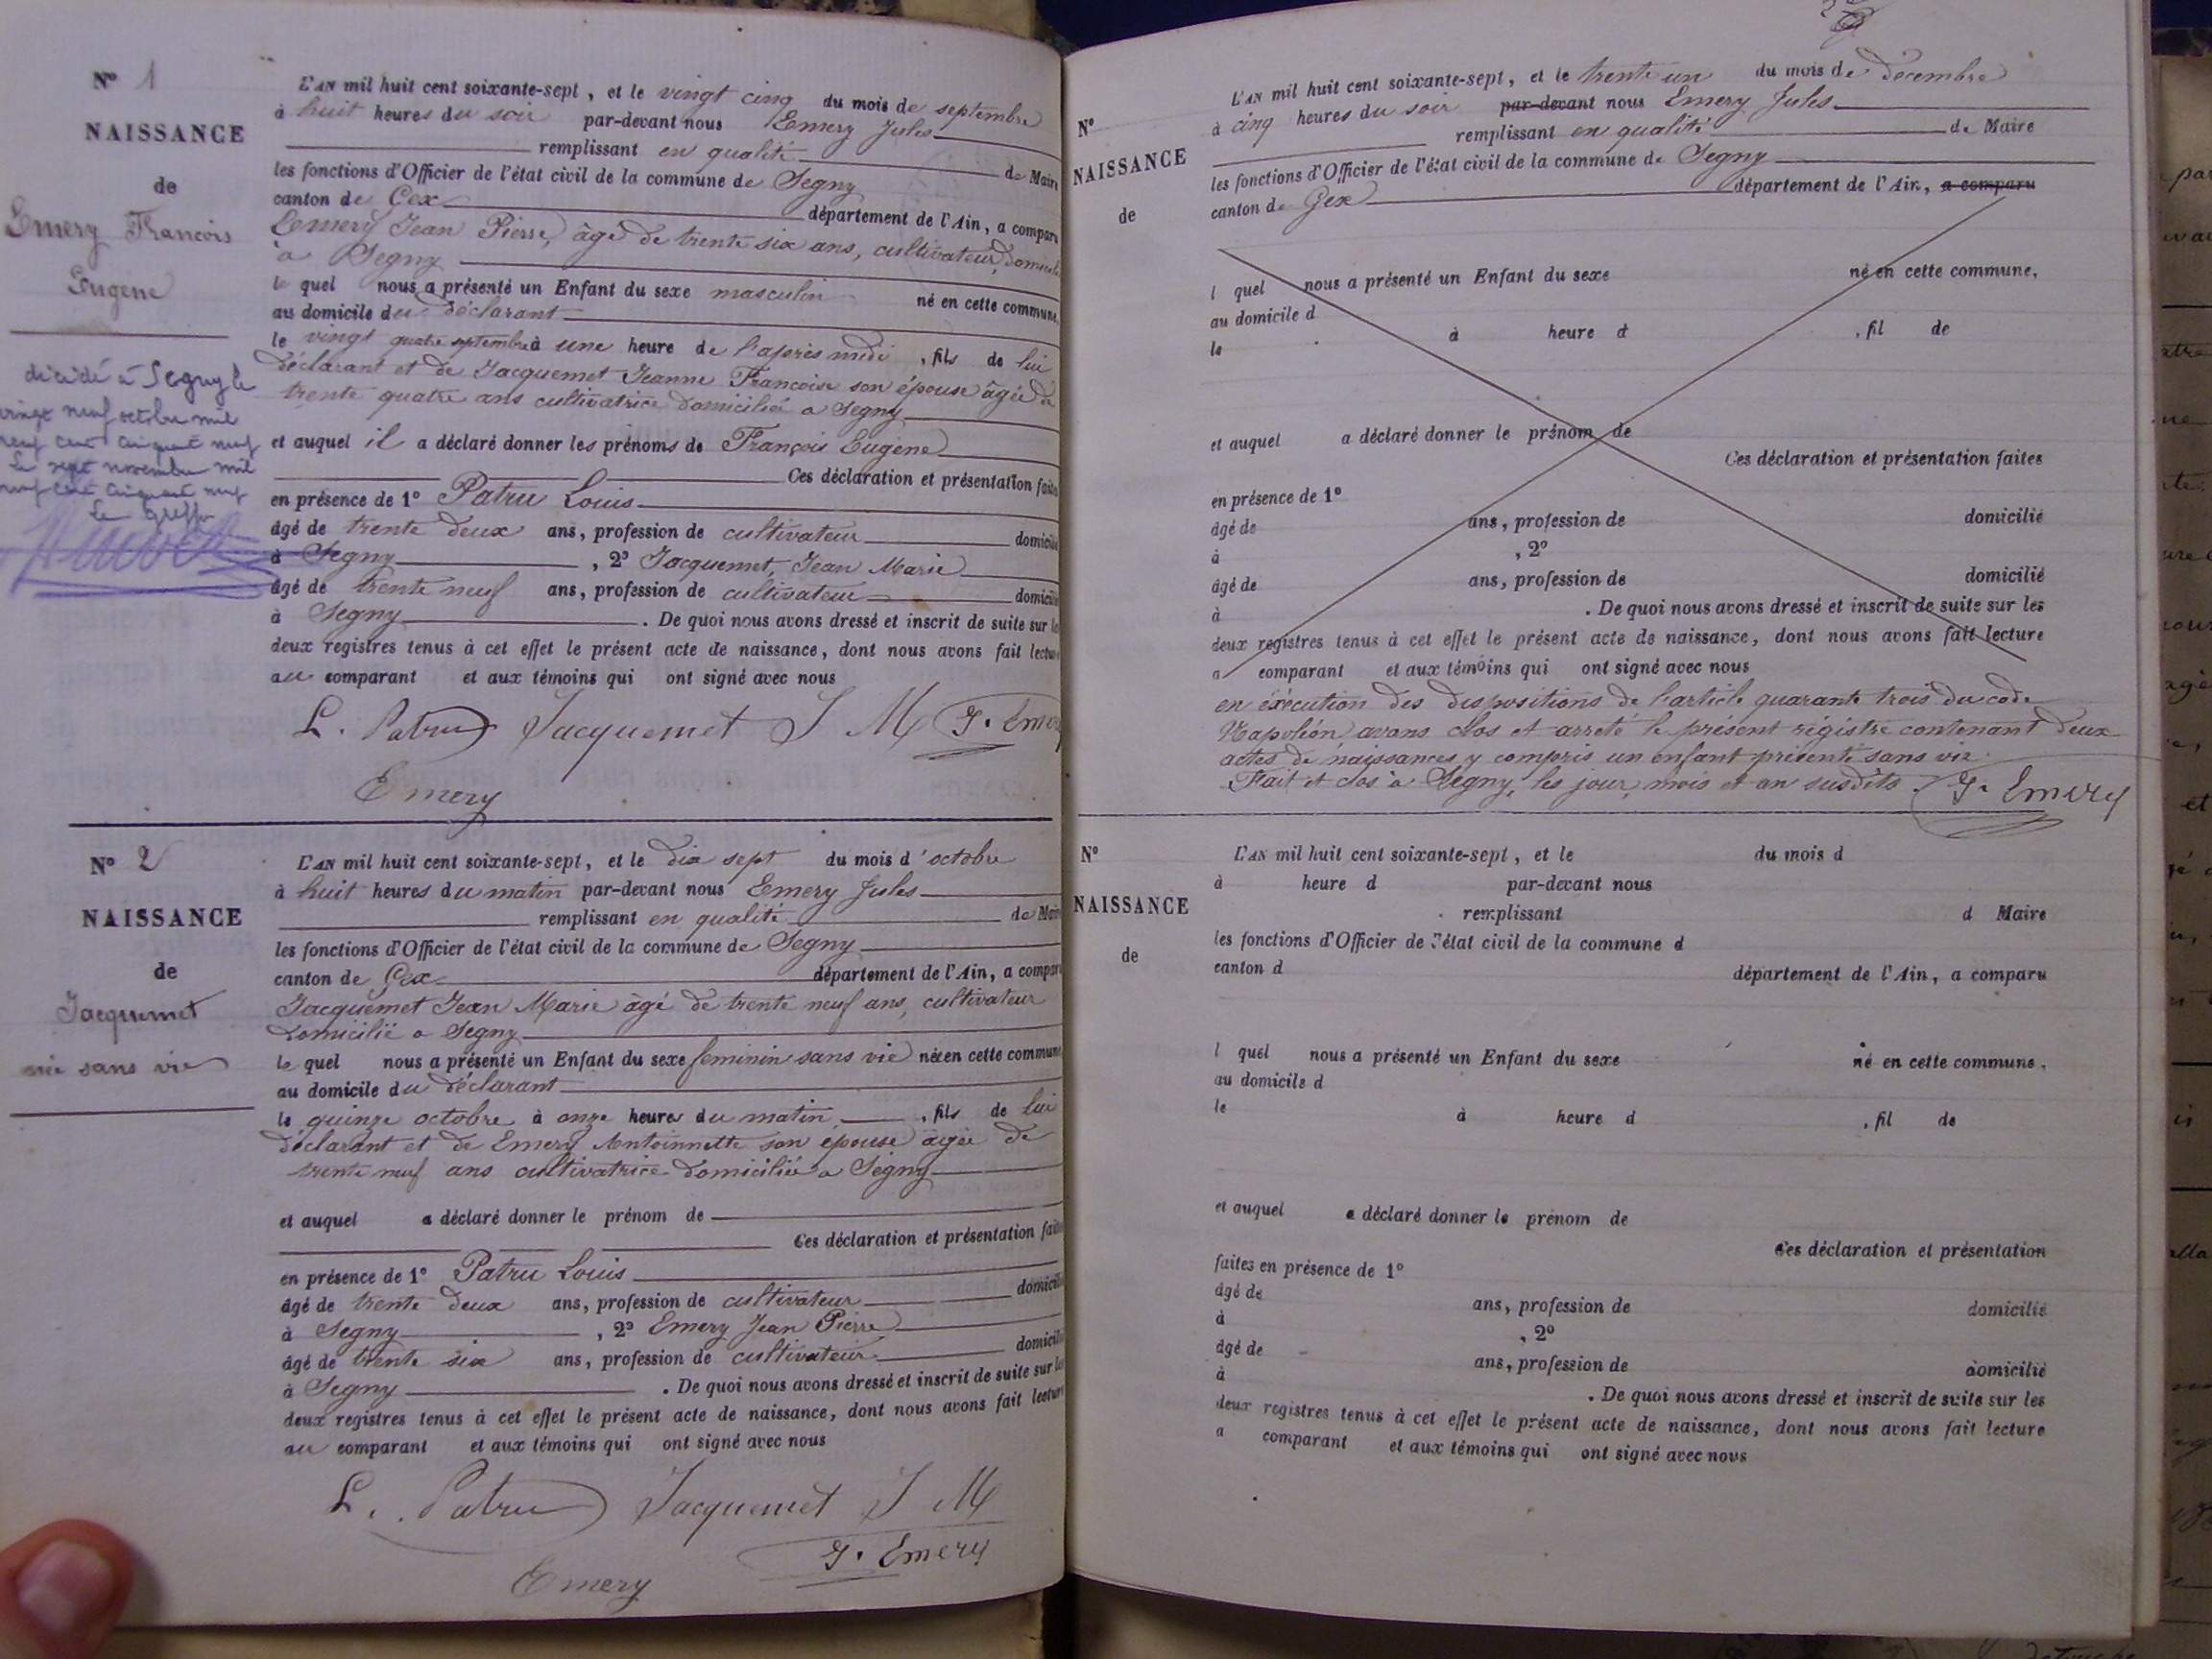 Nº 1
NAISSANCE
de
Emery François
Eugène
décédé à Segny le
vingt neuf octobre mil
neuf cent cinquante neuf
Le sept novembre mil
neuf cent cinquante neuf
Le greffier
L'AN mil huit cent soixante-sept, et le vingt cinq du mois de septembre
à huit heures du soir par-devant nous Emery Jules
remplissant en qualité de Maire
les fonctions d'Officier de l'état civil de la commune de Segny
canton de Gex département de l'Ain, a comparu
Emery Jean Pierre, âgé de trente six ans, cultivateur, domicilié
à Segny
le quel nous a présenté un Enfant du sexe masculin né en cette commune,
au domicile du déclarant
le vingt quatre septembre à une heure de l'après midi, fils de lui
déclarant et de Jacquemet Jeanne Françoise son épouse âgée de
trente quatre ans cultivatrice domiciliée a Segny
et auquel il a déclaré donner les prénoms de François Eugène
Ces déclaration et présentation faites
en présence de 1º Patru Louis
âgé de trente deux ans, profession de cultivateur domicilié
à Segny, 2º Jacquemet, Jean Marie
âgé de trente neuf ans, profession de cultivateur domicilié
à Segny. De quoi nous avons dressé et inscrit de suite sur les
deux registres tenus à cet effet le présent acte de naissance, dont nous avons fait lecture
au comparant et aux témoins qui ont signé avec nous
L. Patru Jacquemet J M J. Emery
Emery
Nº 2
NAISSANCE
de
Jacquemet
née sans vie
L'AN mil huit cent soixante-sept, et le dix sept du mois d'octobre
à huit heures du matin par-devant nous Emery Jules
remplissant en qualité de Maire
les fonctions d'Officier de l'état civil de la commune de Segny
canton de Gex département de l'Ain, a comparu
Jacquemet Jean Marie âgé de trente neuf ans, cultivateur
domicilié a Segny
le quel nous a présenté un Enfant du sexe feminin sans vie née en cette commune
au domicile du déclarant
le quinze octobre à onze heures du matin, fils de lui
déclarant et de Emery Antoinnette son épouse âgée de
trente neuf ans cultivatrice domiciliée a Segny
et auquel a déclaré donner le prénom de
Ces déclaration et présentation faites
en présence de 1º Patru Louis
âgé de trente deux ans, profession de cultivateur domicilié
à Segny, 2º Emery Jean Pierre
âgé de trente six ans, profession de cultivateur domicilié
à Segny. De quoi nous avons dressé et inscrit de suite sur les
deux registres tenus à cet effet le présent acte de naissance, dont nous avons fait lecture
au comparant et aux témoins qui ont signé avec nous
L. Patru Jacquemet J M
J. Emery
Emery
Nº
NAISSANCE
de
L'AN mil huit cent soixante-sept, et le trente un du mois de décembre
à cinq heures du soir par-devant nous Emery Jules
remplissant en qualité de Maire
les fonctions d'Officier de l'état civil de la commune de Segny
canton de Gex département de l'Ain, a comparu
l quel nous a présenté un Enfant du sexe né en cette commune,
au domicile d
le à heure d , fil de
et auquel a déclaré donner le prénom de
Ces déclaration et présentation faites
en présence de 1º
âgé de ans, profession de domicilié
à , 2º
âgé de ans, profession de domicilié
à . De quoi nous avons dressé et inscrit de suite sur les
deux registres tenus à cet effet le présent acte de naissance, dont nous avons fait lecture
a comparant et aux témoins qui ont signé avec nous
en éxécution des dispositions de l'article quarante trois du code
Napoléon, avons clos et arreté le présent régistre contenant deux
actes de naissances y compris un enfant présenté sans vie.
Fait et clos à Segny, les jour, mois et an susdits. J. Emery
Nº
NAISSANCE
de
L'AN mil huit cent soixante-sept, et le du mois d
à heure d par-devant nous
remplissant d Maire
les fonctions d'Officier de l'état civil de la commune d
canton d département de l'Ain, a comparu
l quel nous a présenté un Enfant du sexe né en cette commune,
au domicile d
le à heure d , fil de
et auquel a déclaré donner le prénom de
Ces déclaration et présentation
faites en présence de 1º
âgé de ans, profession de domicilié
à , 2º
âgé de ans, profession de domicilié
à . De quoi nous avons dressé et inscrit de suite sur les
deux registres tenus à cet effet le présent acte de naissance, dont nous avons fait lecture
a comparant et aux témoins qui ont signé avec nous